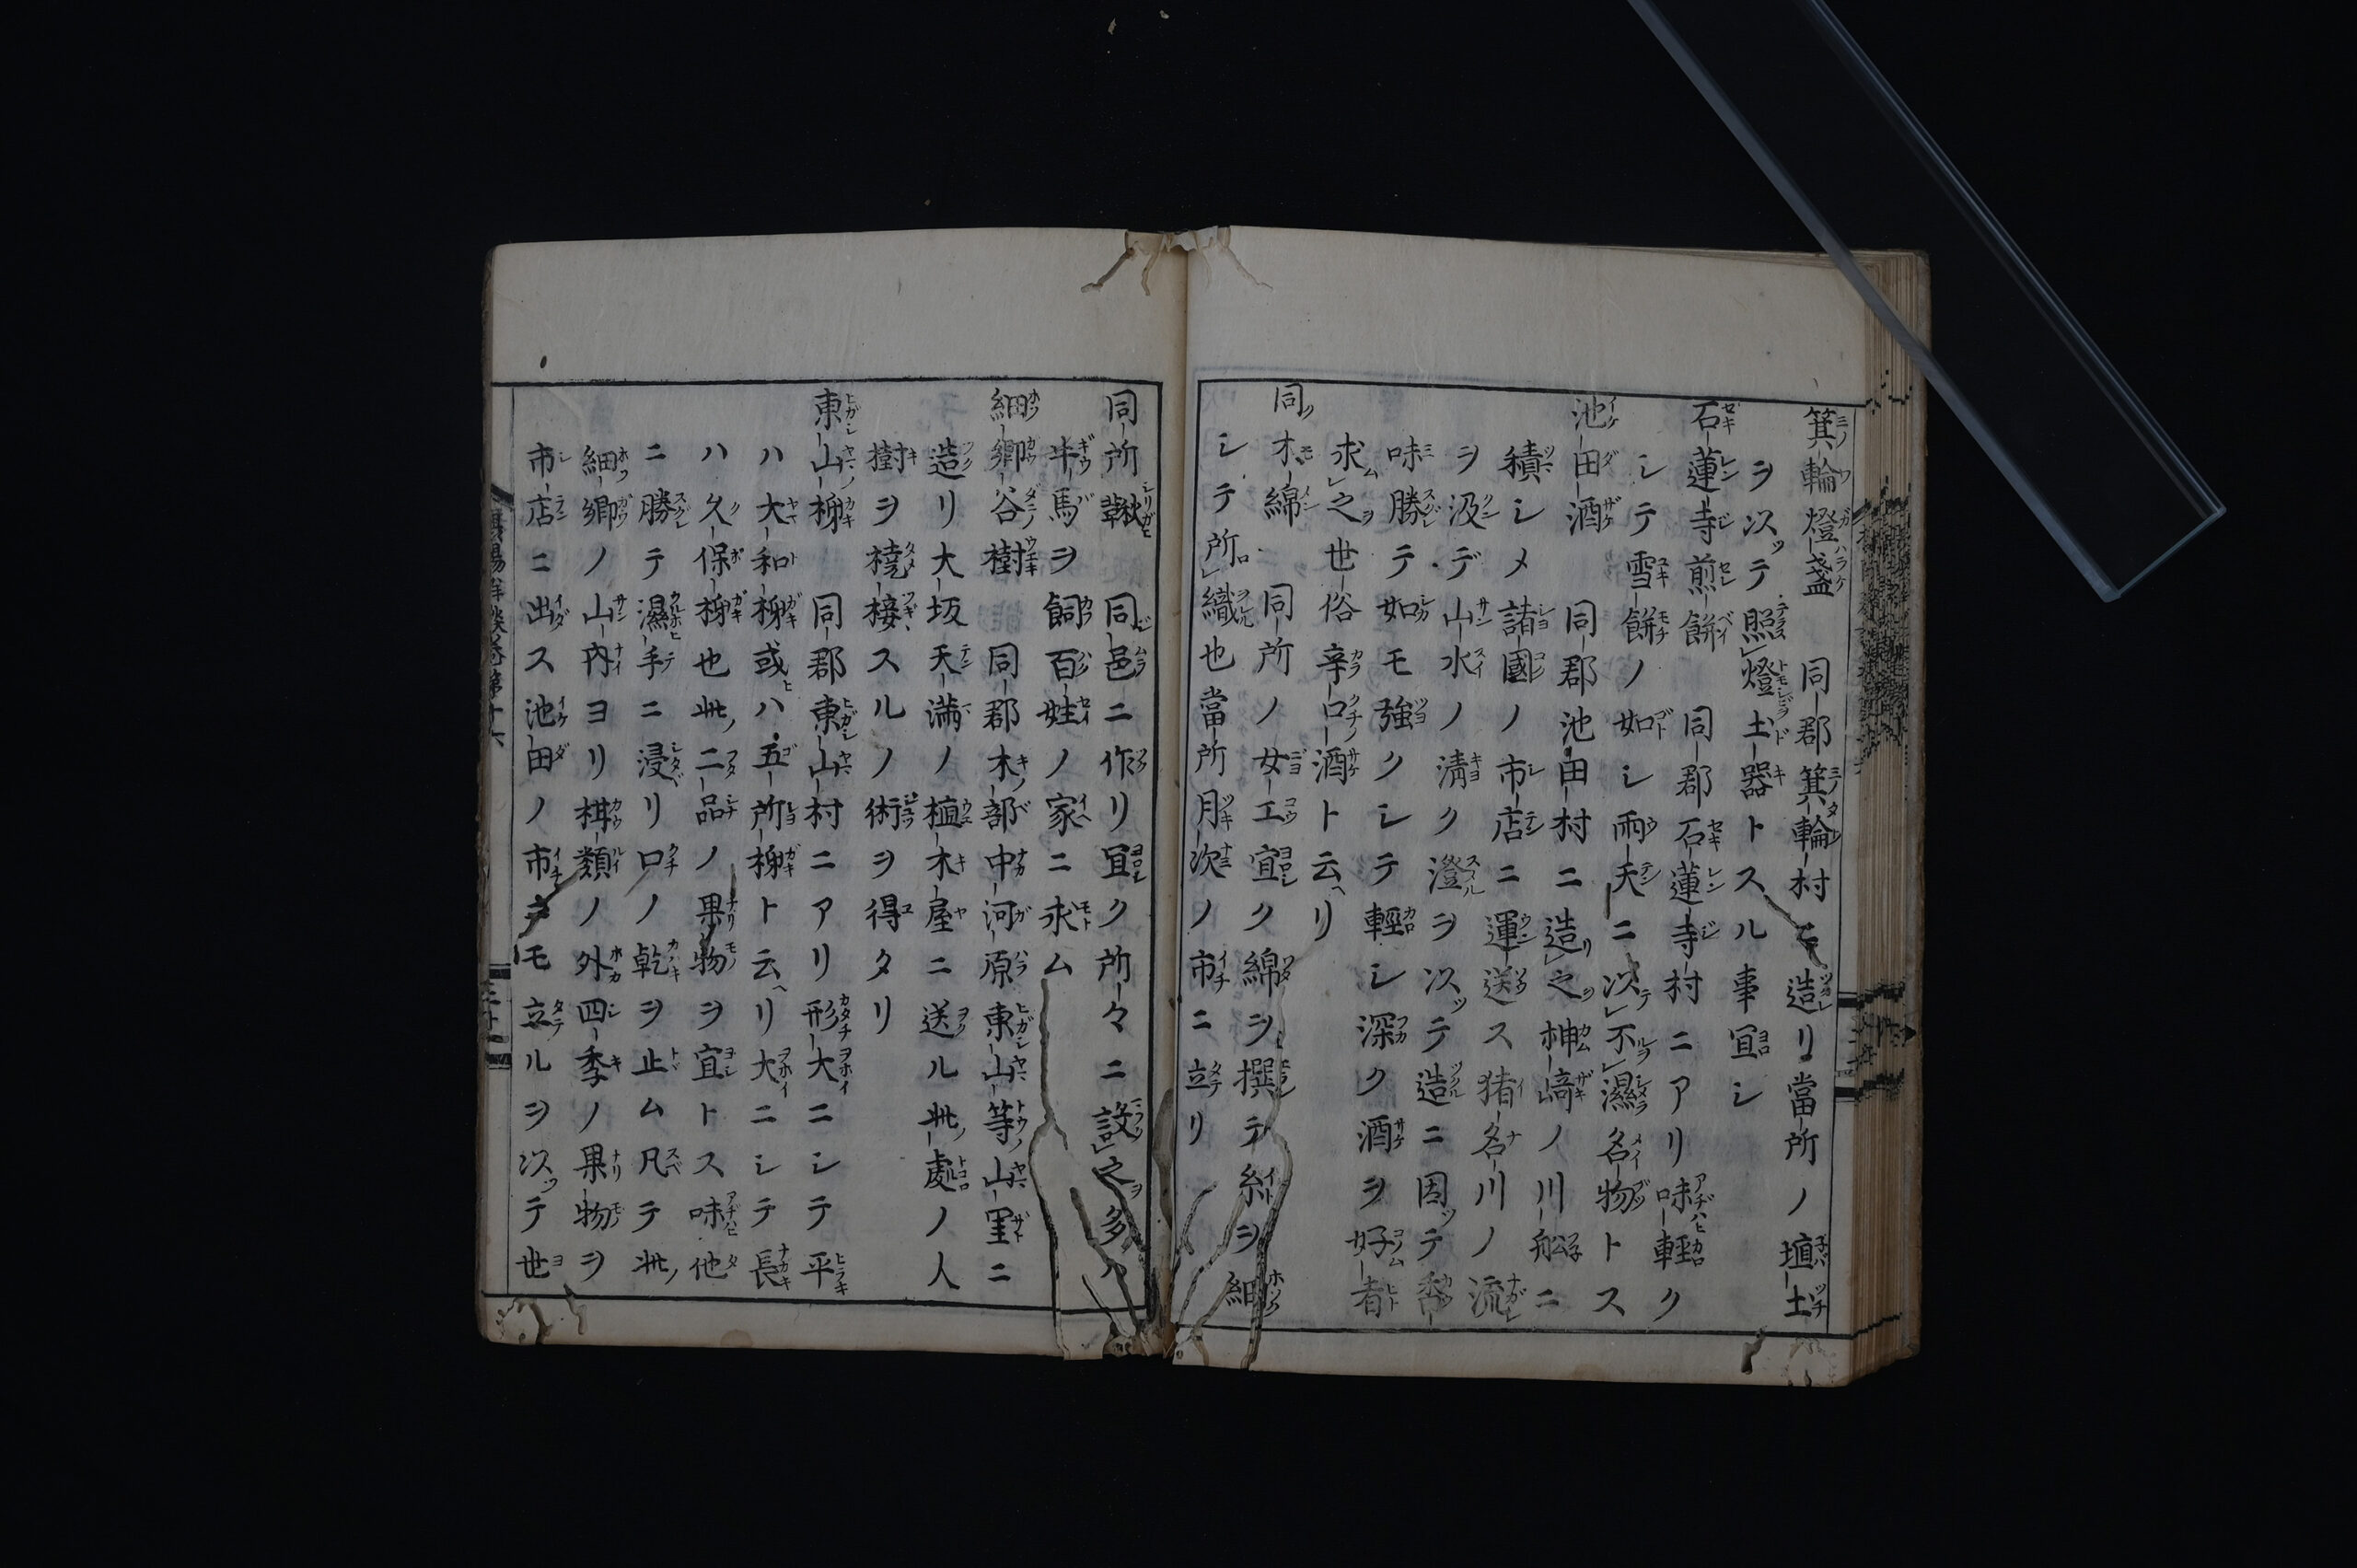 箕輪燈盞　同郡箕輪村ニ造リ當所ノ埴土
ヲ以テ照燈土器トスル事宜シ
石蓮寺煎餅　同郡石蓮寺村ニアリ味軽ク
シテ雪餅ノ如シ雨天ニ以不濕名物トス
池田酒　同郡池田村ニ造之神﨑ノ川船ニ
積シメ諸國ノ市店ニ運送ス猪名川ノ流
ヲ汲デ山水ノ淸ク澄ヲ以テ造ニ因テ香
味勝テ如モ強クシテ軽シ深ク酒ヲ好者
求之世俗辛口酒ト云リ
同木綿　同所ノ女工宜ク綿ヲ撰テ糸ヲ細
シテ所織也當所月次ノ市ニ立リ
同所鞦　同邑ニ作リ宜ク所々ニ設之多ハ
牛馬ヲ飼百姓ノ家ニ求ム
細郷谷樹　同郡木部中河原東山等山里ニ
造リ大坂天満ノ植木屋ニ送ル此處ノ人
樹ヲ橈接スルノ術ヲ得タリ
東山柹　同郡東山村ニアリ形大ニシテ平
ハ大和柹或ハ五所柹ト云リ大ニシテ長
ハ久保柹也此二品ノ果物ヲ宜トス味他
ニ勝テ濕手ニ浸リ口ノ乾ヲ止ム凡テ此
細郷ノ山内ヨリ柑類ノ外四季ノ果物ヲ
市店ニ出ス池田ノ市ヲモ立ルヲ以テ世